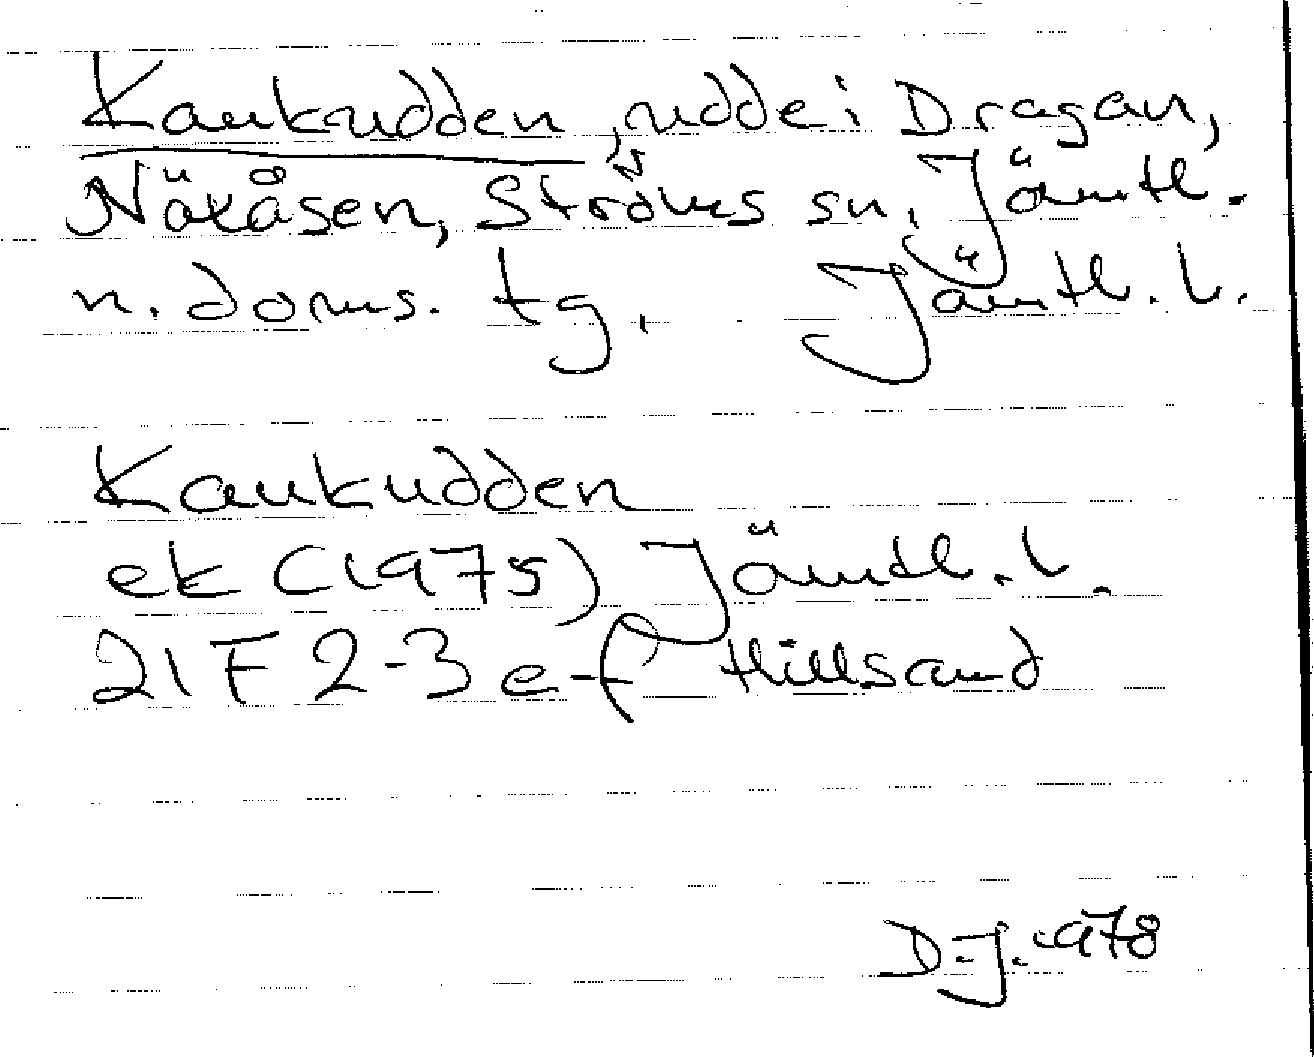 Kankudden, udde i Dragan,
Näxåsen, Ströms sn, Jämtl.
n. doms. tg. Jämtl. l.
Kankudden
ek (1975) Jämtl. l.
21F 2-3 e-f Hillsand
D.J. 1978